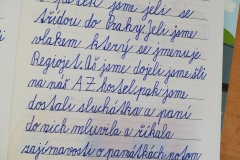 jsme jeli se
třídou do Prahy. Jeli jsme
vlakem který se jmenuje
Regiojet. Až jsme dojeli jsme šli
na náš AZ hostel pak jsme
dostali sluchátka a paní
do nich mluvila a říkala
zajímavosti o památkách potom